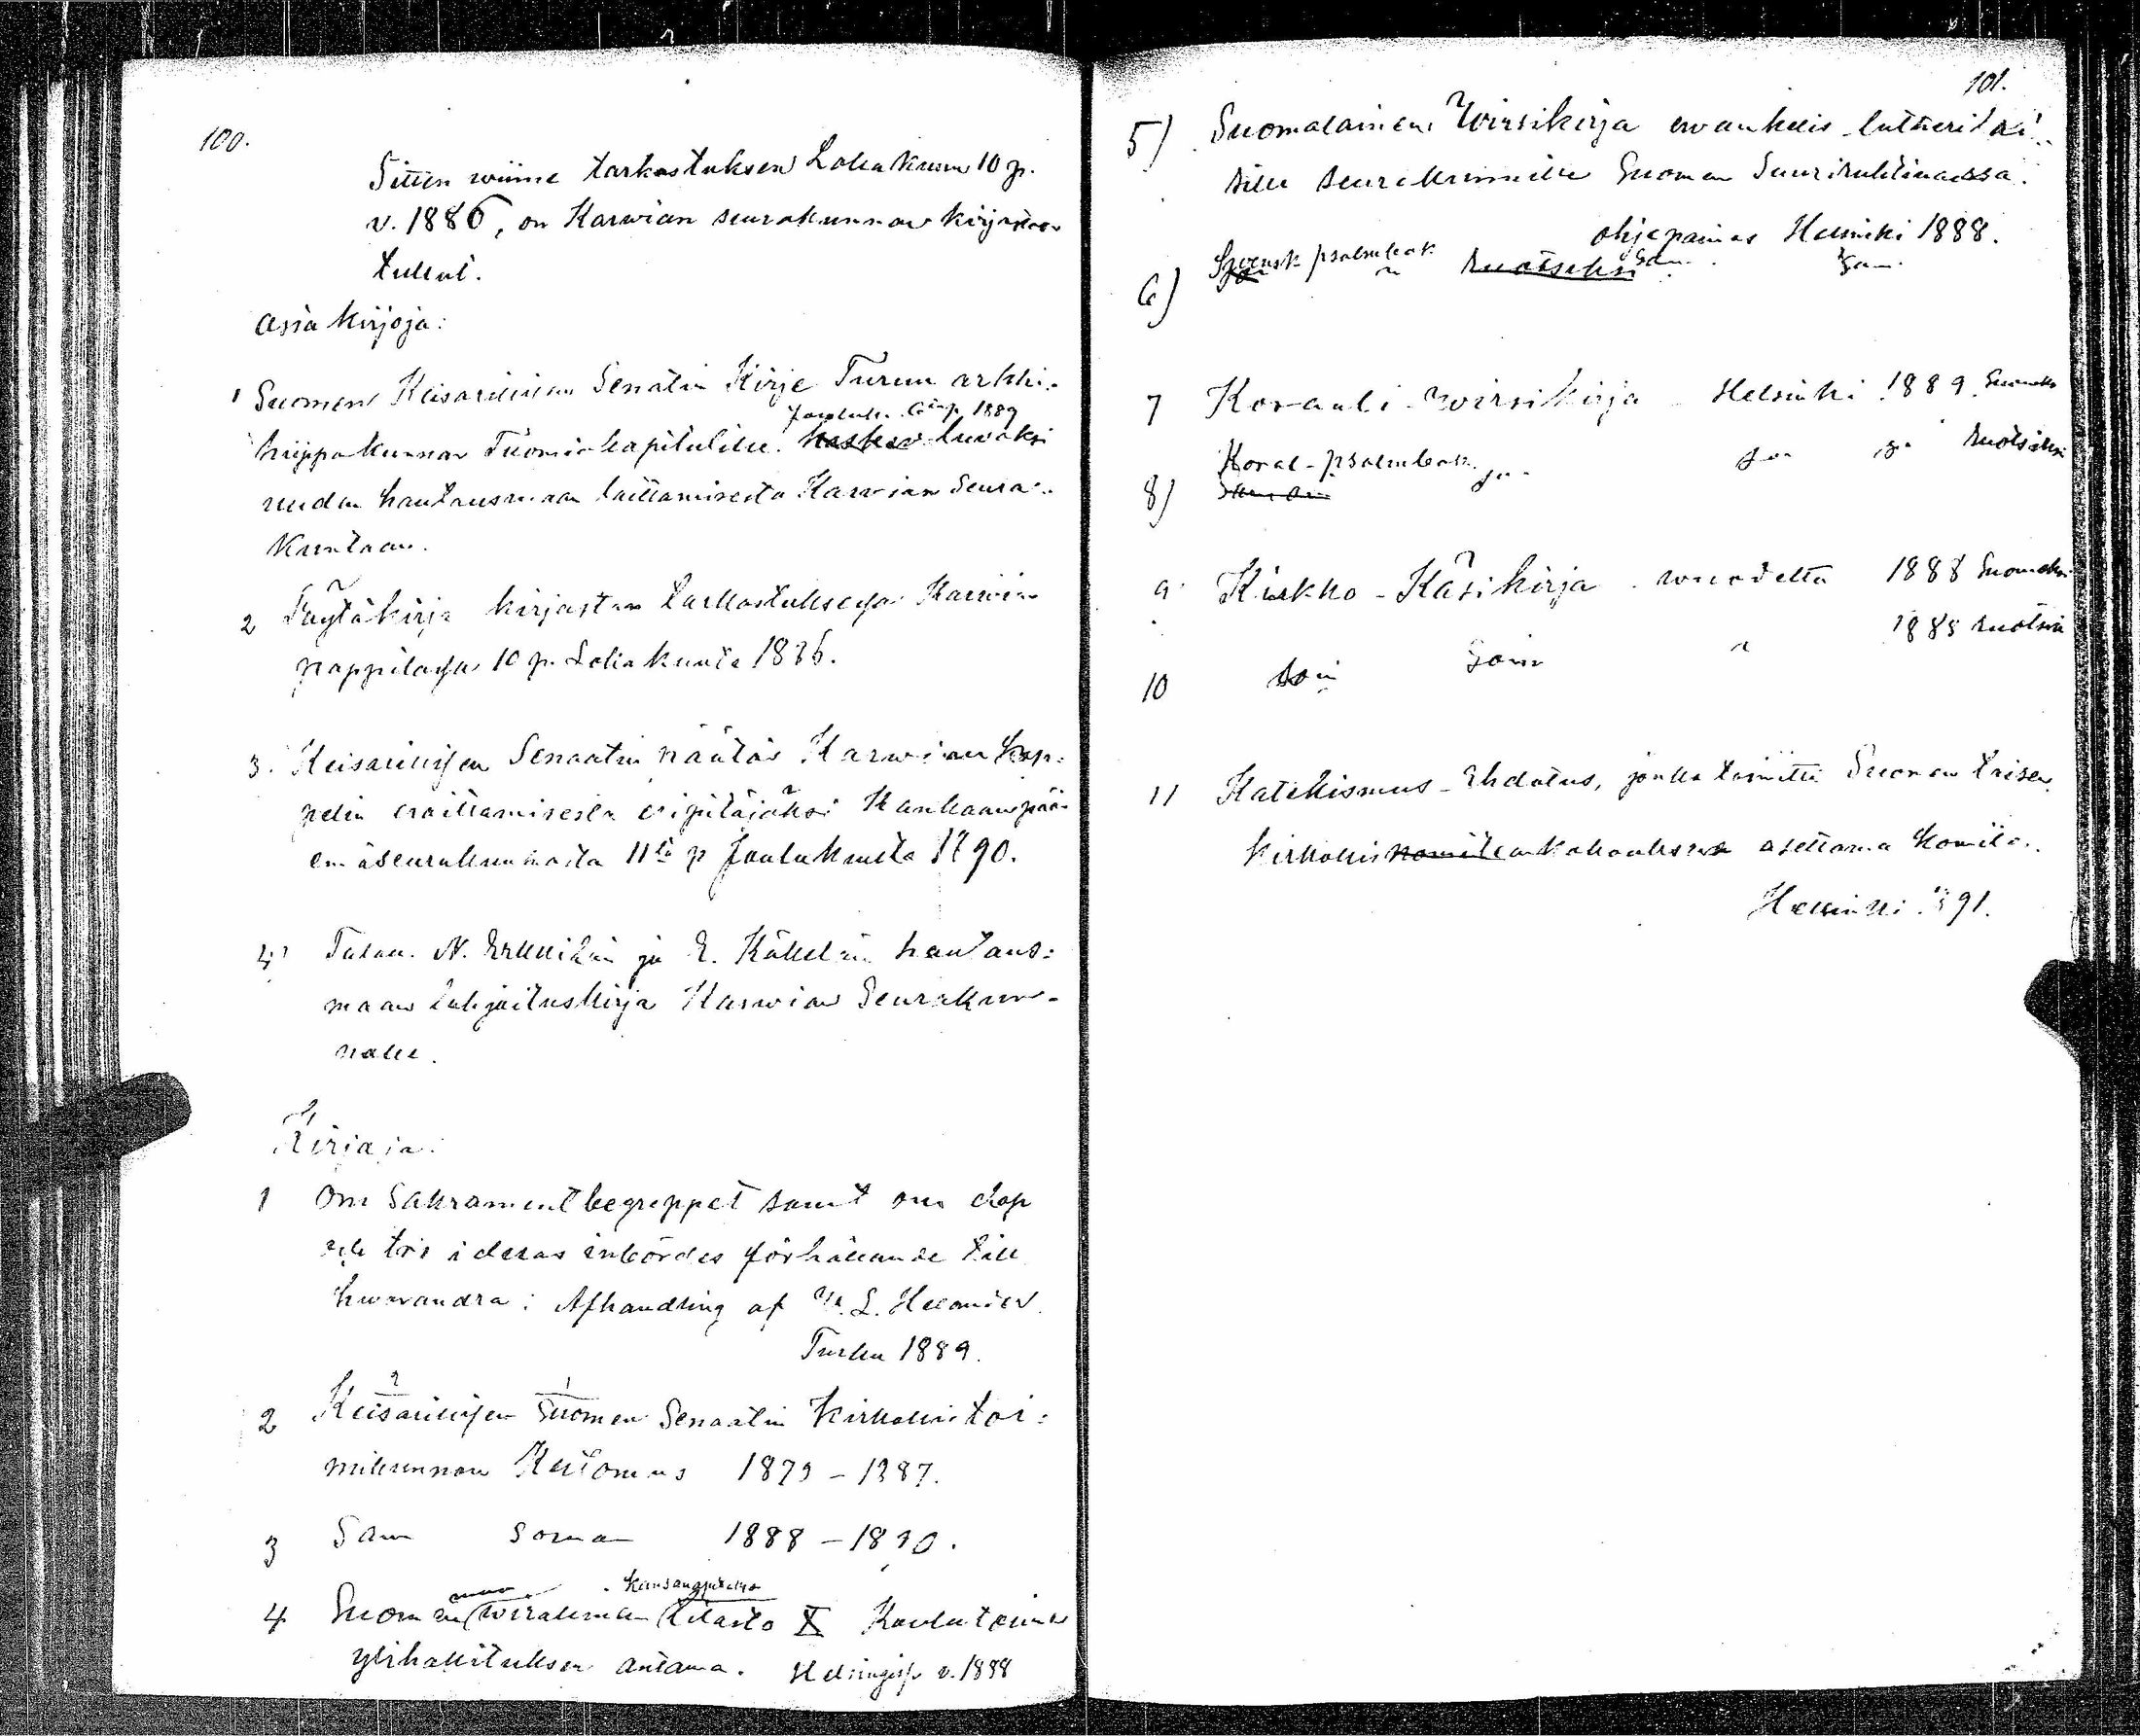 100.
Sitten wiime tarkastuksen Lokakuun 10 p.
v. 1886, on Karwian seurakunnan kirjastoon
tullut.
Asiakirjoja:
1 Suomen Keisarillisen Senatin Kirje Turun arkki-
Jouluk. 1889
hiippakunnan Tuomiokapitulille. koskeva luvaksi
uuden hautausmaan laittamisesta Karwian Seura-
kuntaan.
2 Pöytäkirja kirjaston tarkastuksessa Karwian
pappilassa 10 p. Lokakuuta 1886.
3. Keisarillisen Senaatin päätös Karwian kap-
pelin eroittamisesta eripitäjäksi Kankaanpään
emäseurakunnasta 11tä p Joulukuuta 1890.
4 Talon. N. ja E. Käkelän hautaus-
maan lahjoituskirja Karwian Seurakun-
nalle.
Kirjoja:
1 Om Sakramentbegreppet samt om dop
och tro i deras inbördes förhållande till
hwarandra; Afhandling af L.
Turku 1889.
2 Keisarillisen Suomen Senaatin Kirkollistoi-
mikunnan Kertomus 1879 – 1887.
3 Sam Soman 1888 – 1890.
Kansanopetus
4 Suomen wirallinen tilasto X Koulutoimen
ylihallituksen antama. Helsingiss v. 1888
101.
5) Suomalainen Wirsikirja ewankelis-lutherilai-
sille seurakunnille Suomen Suuriruhtinaassa.
ohjepainos Helsinki 1888.
6) Svensk psalmbok " Ruotseksi Sam. Sam.
7 Koraali-wirsikirja Helsinki 1889 Suomeksi
8) Koral-psalmbok Ruotsiksi
9 Kirkko-Käsikirja wuodelta 1888 Suomeksi
10 Sam " 1888 Ruotsiksi
11 Katekismus-Ehdotus, jonka toimitti Suomen toisen
kirkollis komitean kokouksen asettama komitea.
Helsinki 1891.